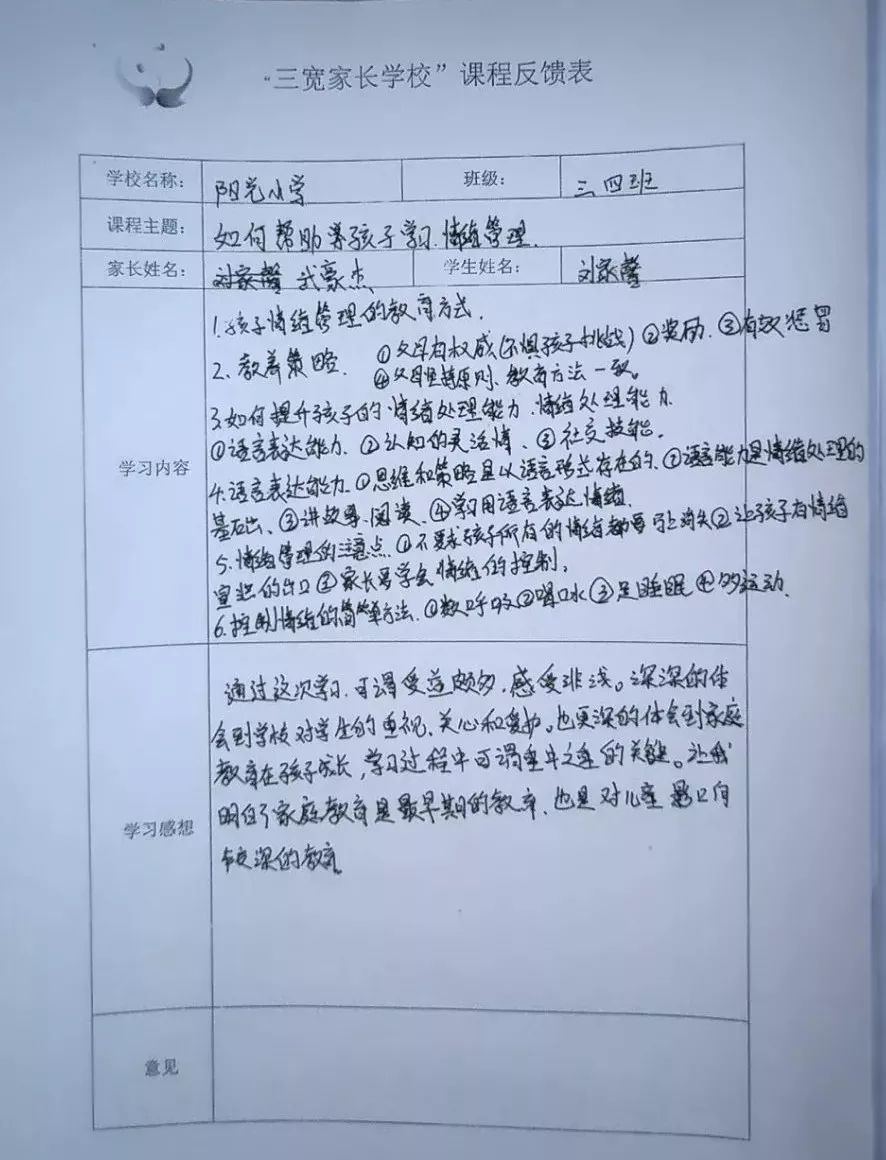 “三宽家长学校”课程反馈表
学校名称: 阳光小学 班级: 三、四班
课程主题: 如何帮助养孩子学习.情绪管理.
家长姓名: 武豪杰 学生姓名: 刘家馨
学习内容
1.孩子情绪管理的教育方式.
2、教养策略. ①父母有权威(不惧孩子挑战)②奖励.③有效惩罚
④父母坚持原则、教育方法一致。
3.如何提升孩子的情绪处理能力.情绪处理能力.
①语言表达能力.②认知的灵活情、③社交技能.
4.语言表达能力.①思维和策略是以语言形式存在的.②语言能力是情绪处理的
基石出、③讲故事.阅读、④学习用语言表达情绪.
5.情绪管理的注意点.①不要求孩子所有的情绪都要马上消失②让孩子有情绪
宣泄的出口③家长要学会情绪的控制。
6.控制情绪的简单方法.①数呼吸②喝口水③足睡眠④多运动.
学习感想
通过这次学习.可谓受益颇多,感受非浅。深深的体
会到学校对学生的重视、关心和爱护。也更深的体会到家庭
教育在孩子成长,学习过程中可谓重中之重的关键。让我
明白了家庭教育是最早期的教育、也是对儿童影响
较深的教育。
意见